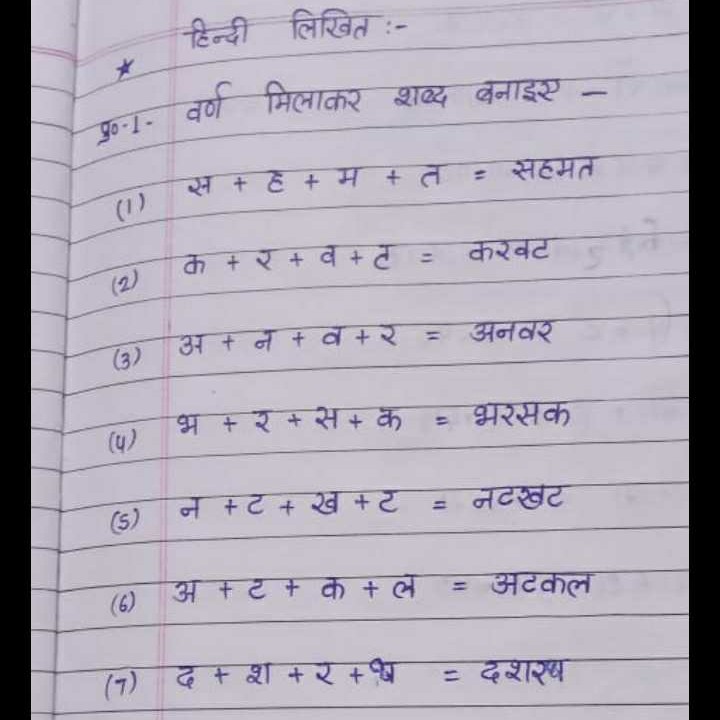 हिन्दी लिखित :-
प्र०-1- वर्ण मिलाकर शब्द बनाइए -
(1) स + ह + म + त = सहमत
(2) क + र + व + ट = करवट
(3) अ + न + व + र = अनवर
(4) भ + र + स + क = भरसक
(5) न + ट + ख + ट = नटखट
(6) अ + ट + क + ल = अटकल
(7) द + श + र + थ = दशरथ